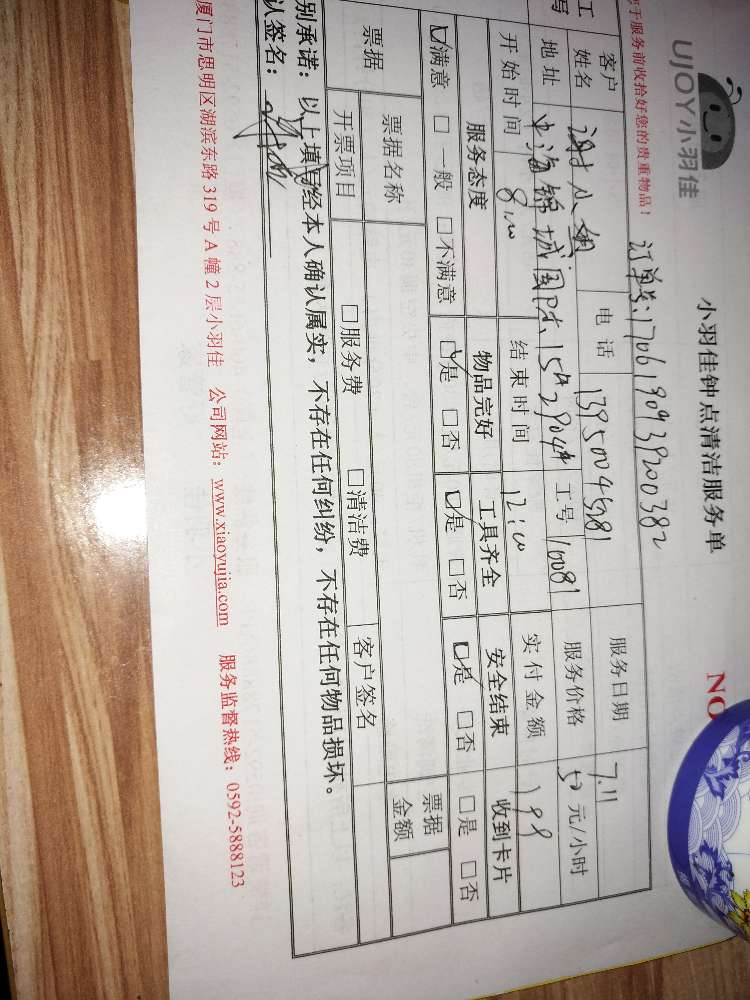 UJOY小羽佳
小羽佳钟点清洁服务单
NO
于服务前收拾好您的贵重物品!
订单号:1706190939200382
客户姓名 谢小姐 电话 13950045681 服务日期 7.11
地址 中海锦城国际15#2904# 工号 10081 服务价格 50元/小时
开始时间 8:00 结束时间 12:00 实付金额 199
服务态度 物品完好 工具齐全 安全结束 收到卡片
☑满意 □一般 □不满意 ☑是 □否 ☑是 □否 ☑是 □否 □是 □否
票据 票据名称 票据金额
开票项目 □服务费 □清洁费 客户签名
别承诺:以上填写经本人确认属实,不存在任何纠纷,不存在任何物品损坏。
认签名:
厦门市思明区湖滨东路319号A幢2层小羽佳 公司网站:www.xiaoyujia.com 服务监督热线:0592-5888123